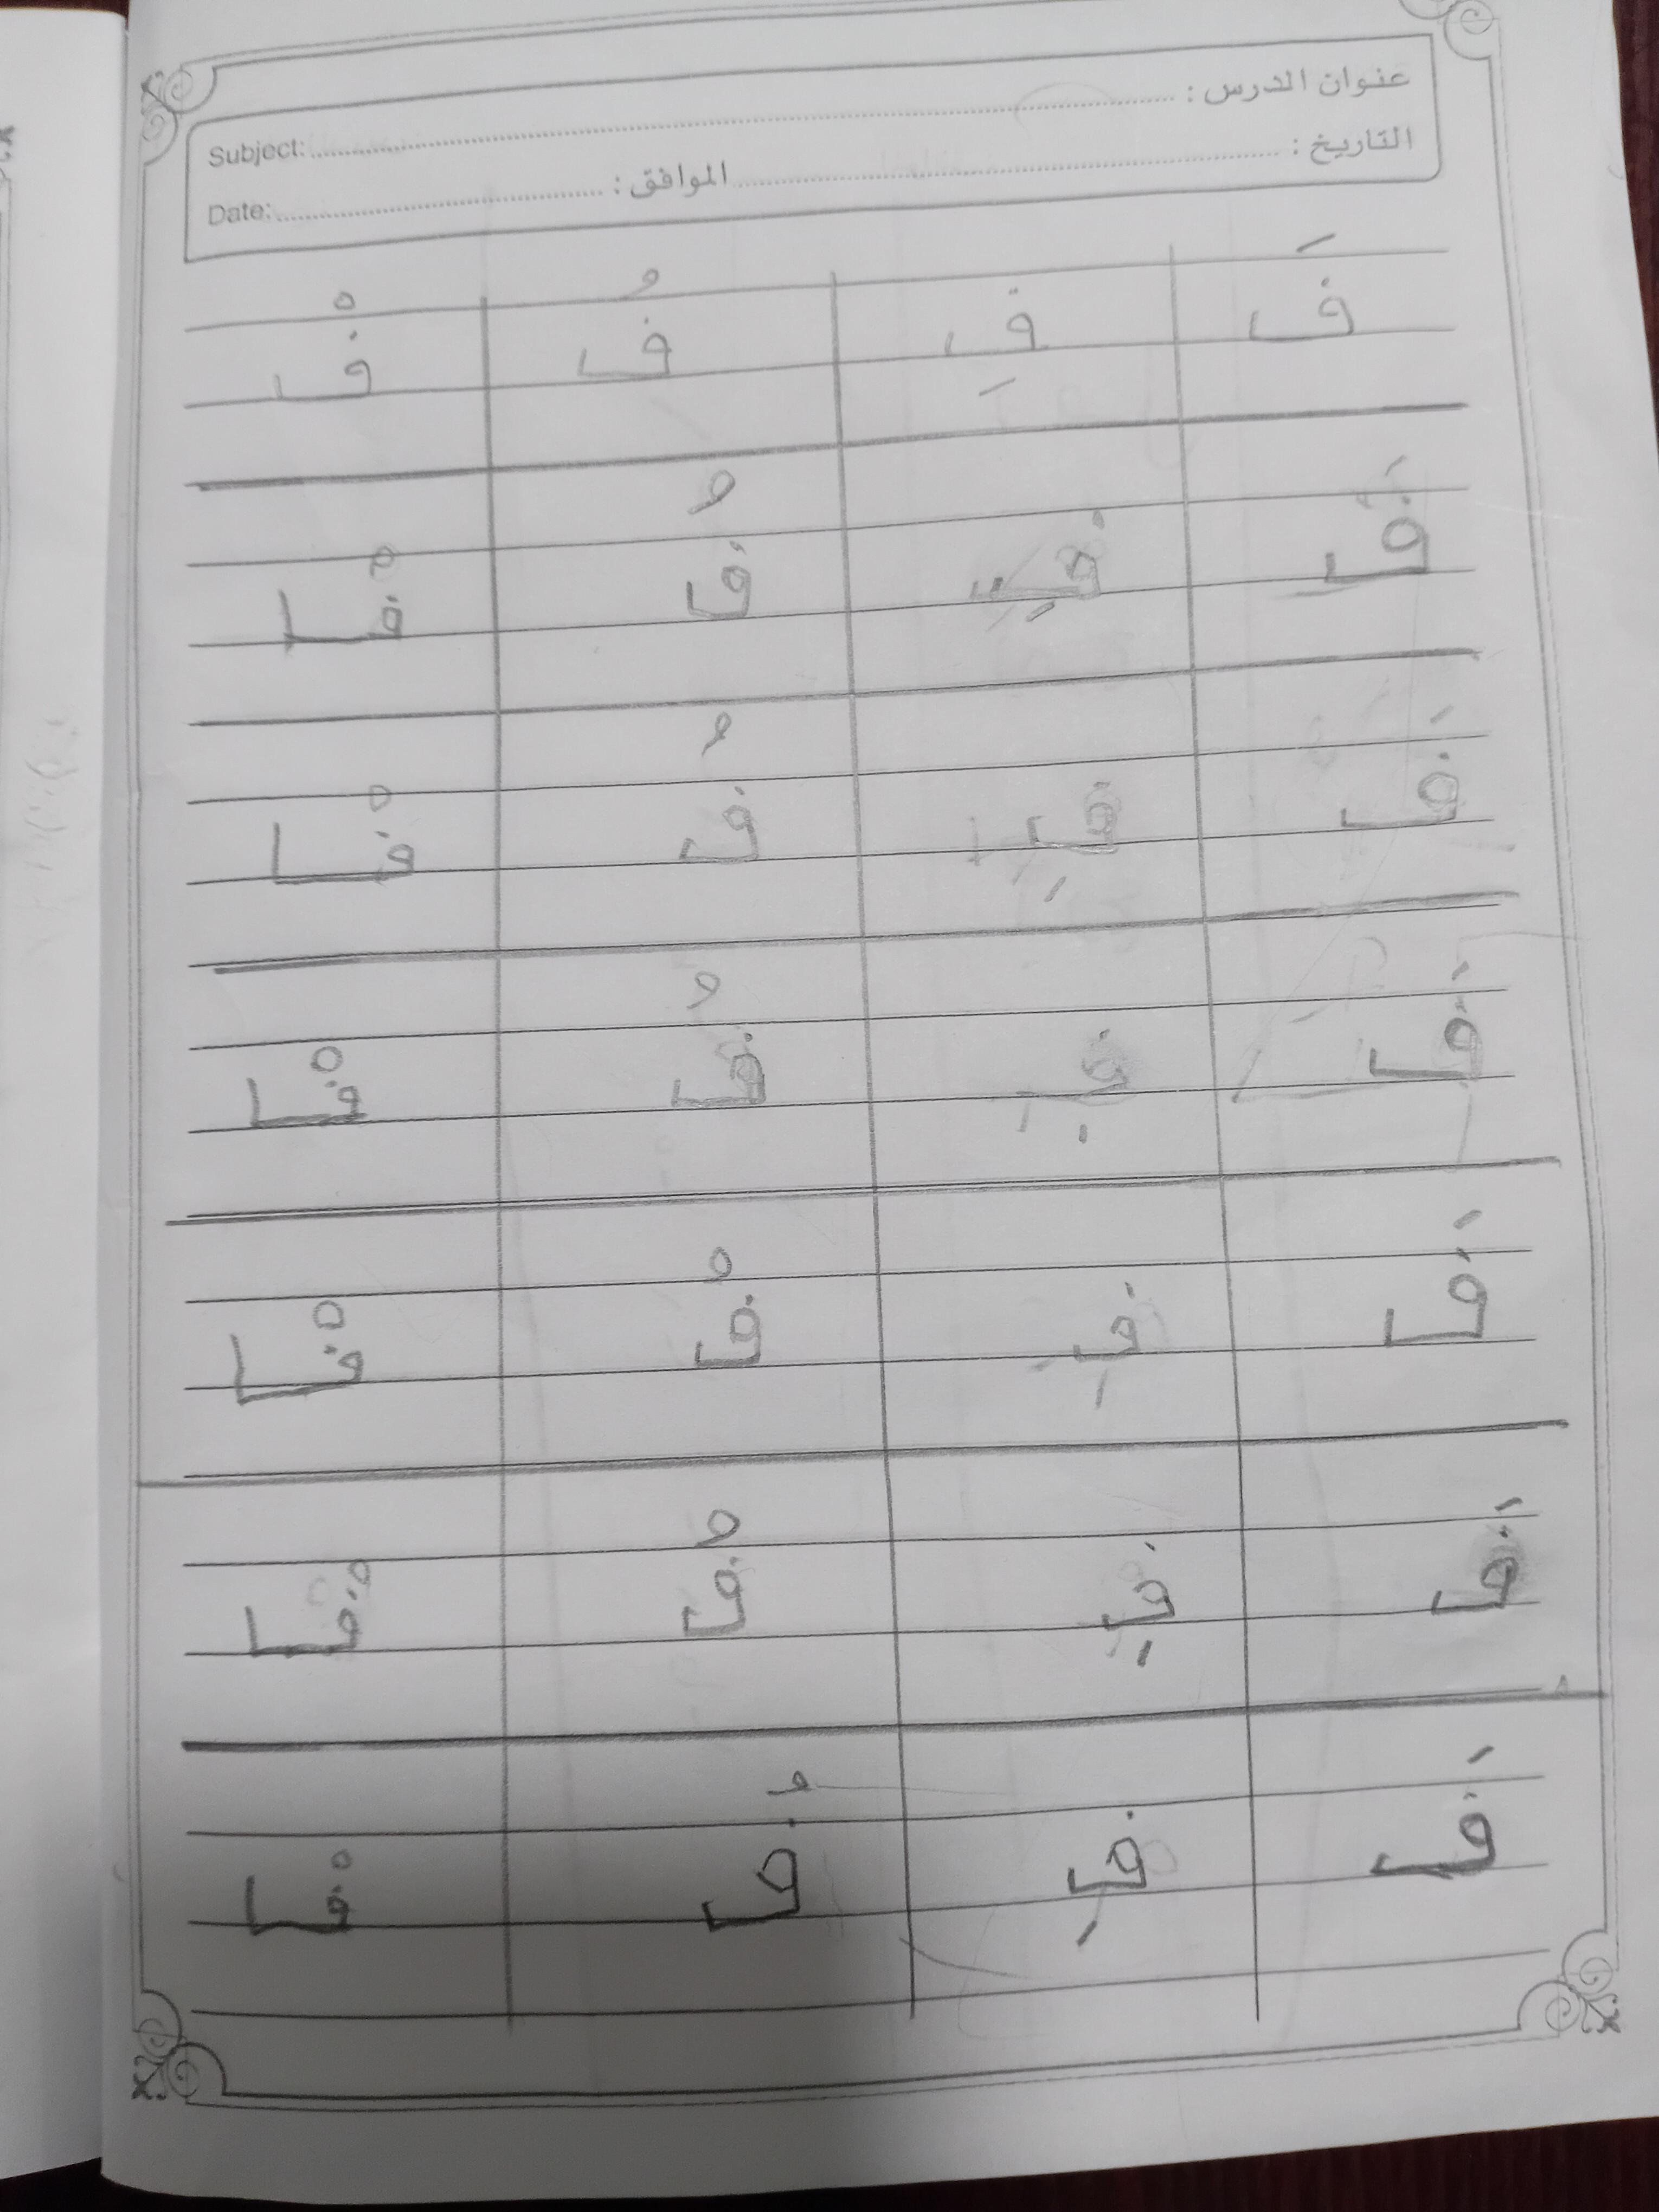 عنوان الدرس :
Subject:
التاريخ : الموافق :
Date:
فَ فِ فُ فْ
فَ فِ فُ فْ
فَ فِ فُ فْ
فَ فِ فُ فْ
فَ فِ فُ فْ
فَ فِ فُ فْ
فَ فِ فُ فْ